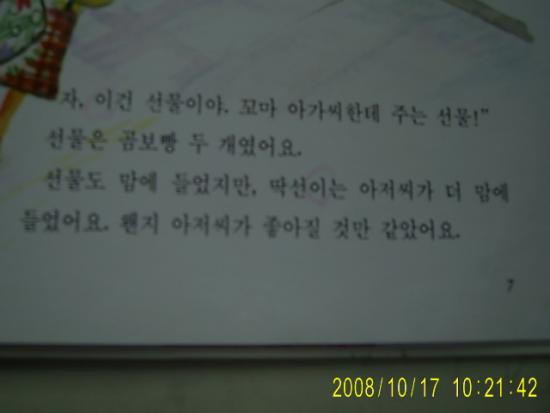 자, 이건 선물이야. 꼬마 아가씨한데 주는 선물!"
선물은 곰보빵 두 개였어요.
선물도 맘에 들었지만, 딱선이는 아저씨가 더 맘에
들었어요. 왠지 아저씨가 좋아질 것만 같았어요.
7
2008/10/17 10:21:42